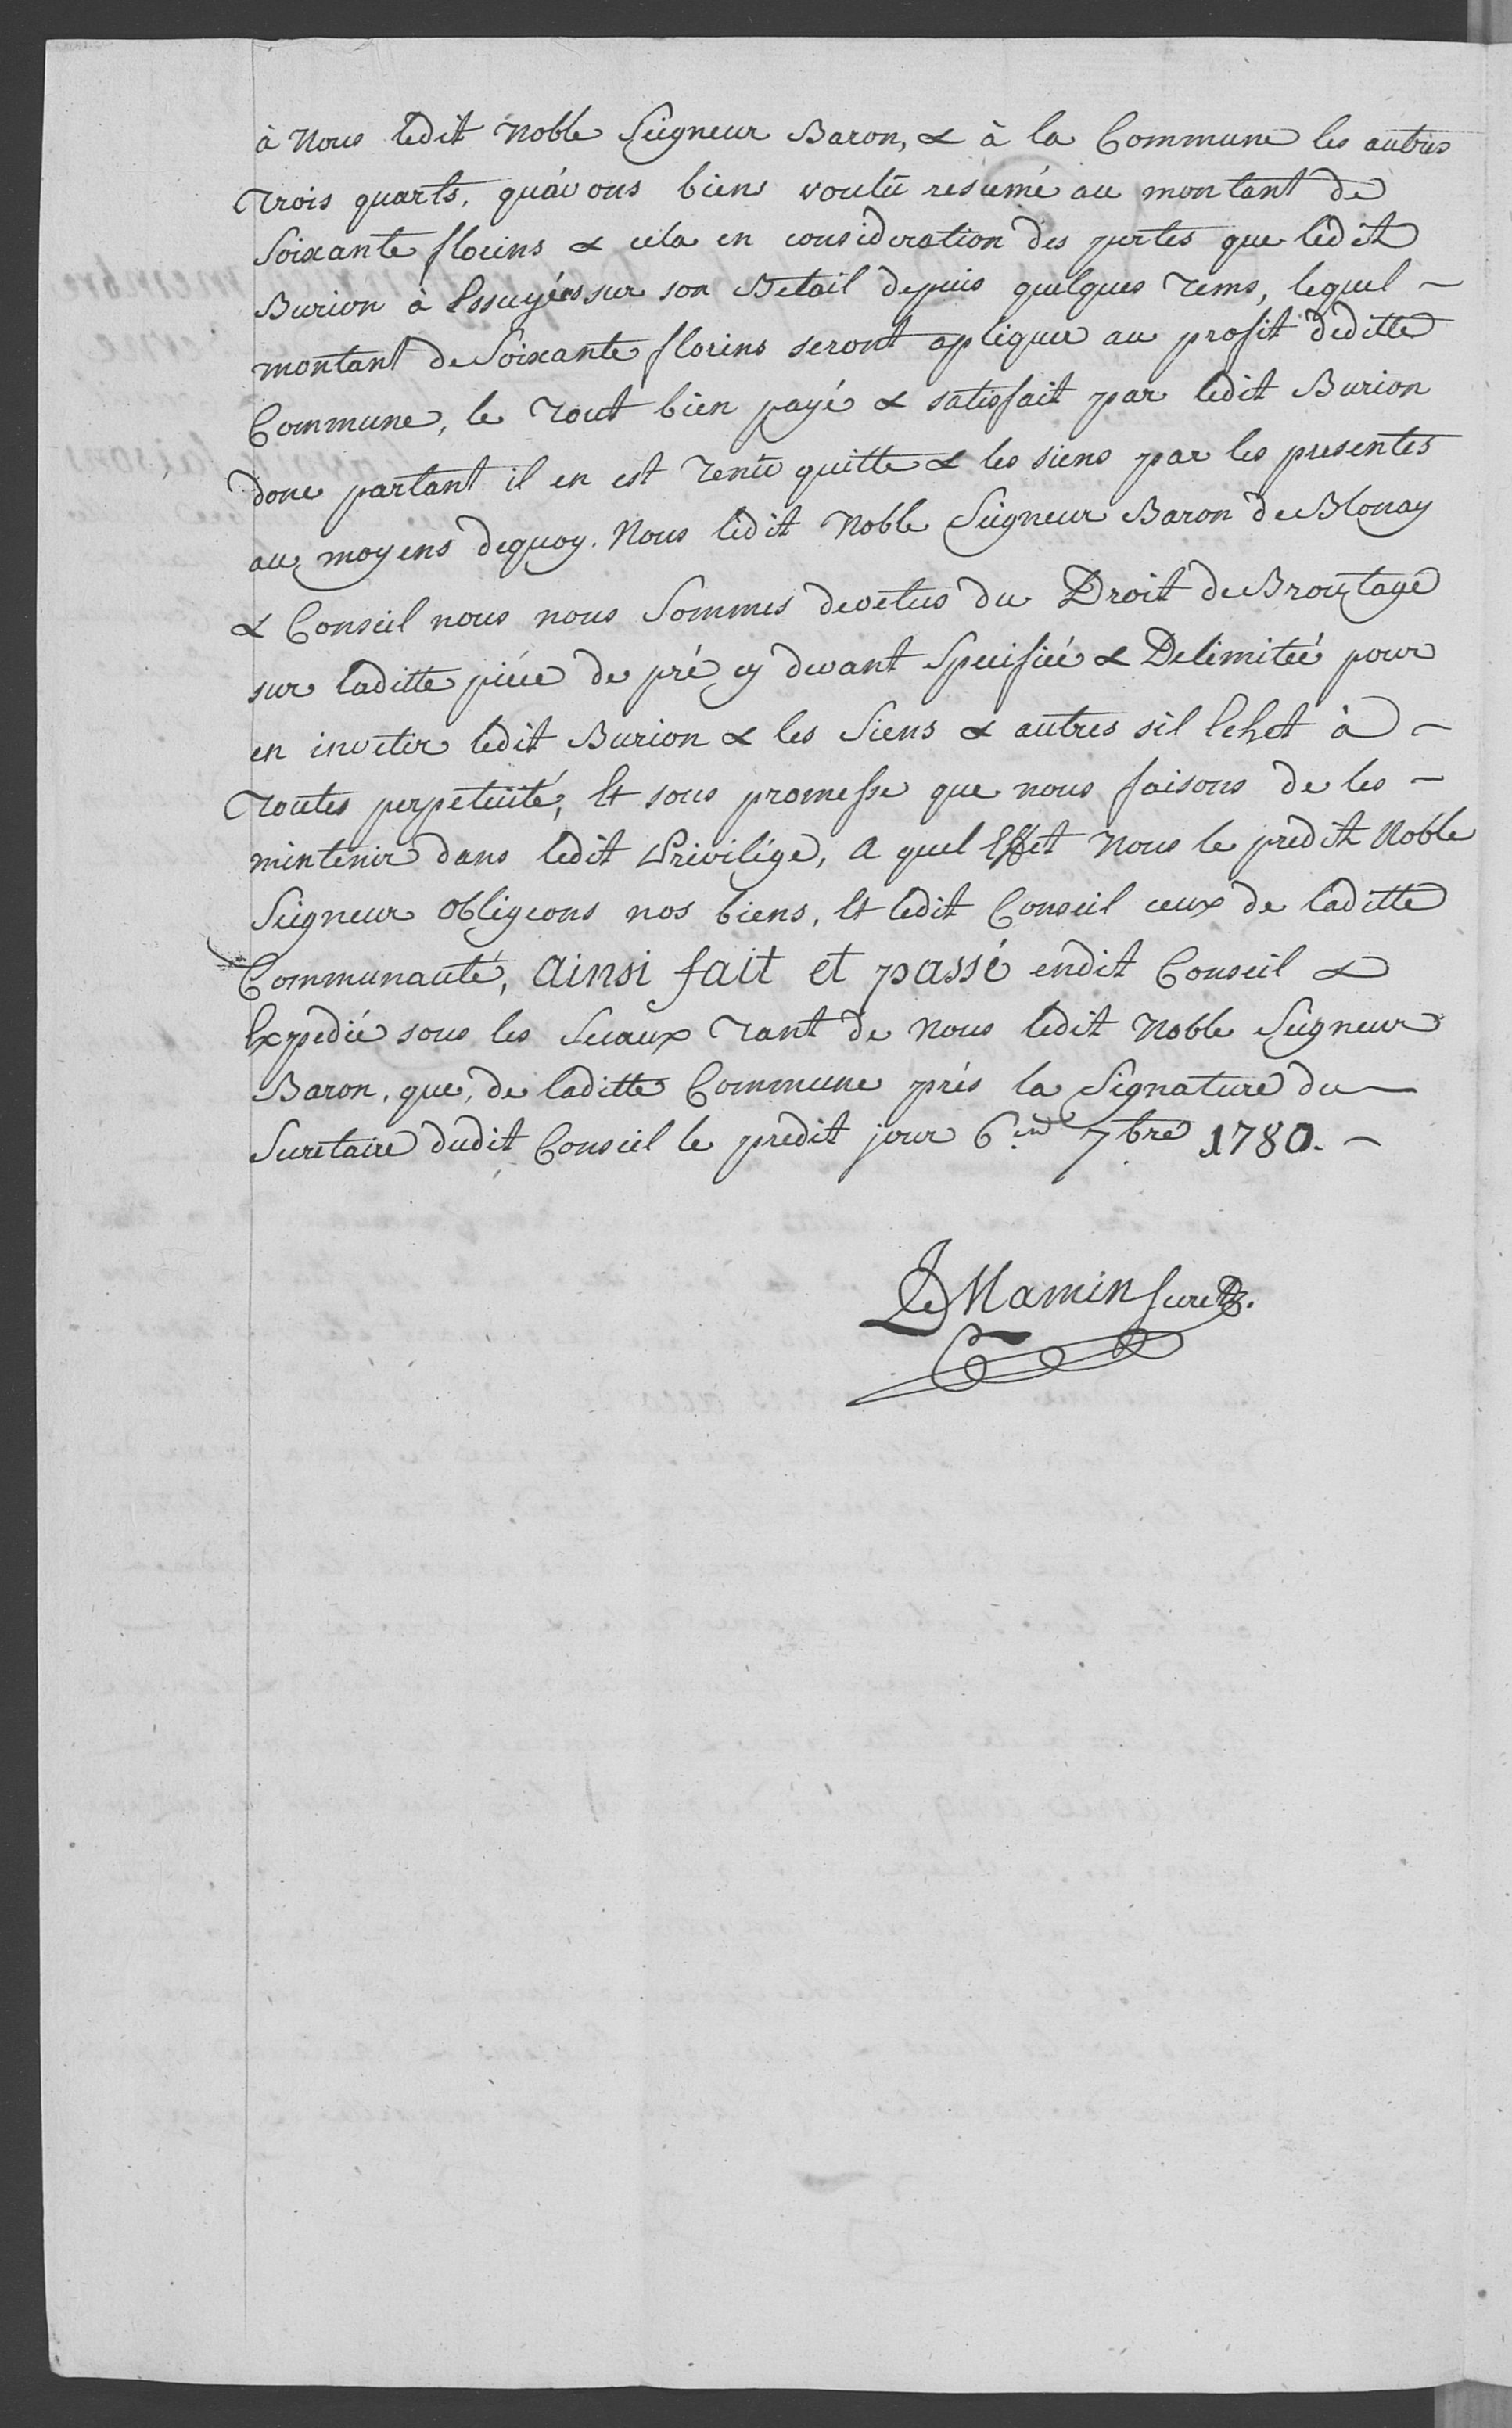 à Nous ledit Noble Seigneur Baron, & à la Commune les autres
Trois quarts, qu'avons biens voulû resumé au montant de
Soixante florins & cela en consideration des pertes que ledit
Burion à Essuyées sur son Betail depuis quelques Tems, lequel -
montant de Soixante florins seront apliquee au profit deditte
Commune, le Tout bien payé & satisfait par ledit Burion
donc partant il en est Tenû quitte & les siens par les presentes
au moyens dequoy. Nous ledit Noble Seigneur Baron de Blonay
& Conseil nous nous Sommes devetus du Droit de Broutage
sur laditte piéce de pré cy devant Specifiée & Delimitée pour
en invetir ledit Burion & les Siens & autres sil lehet à -
Toutes perpetuité, Et sous promesse que nous faisons de les -
mintenir dans ledit Privilége, A quel Effet Nous le predit Noble
Seigneur Obligeons nos biens, Et ledit Conseil ceux de laditte
Communauté, Ainsi fait et passé endit Conseil &
Expedié sous les Sceaux Tant de Nous ledit Noble Seigneur
Baron, que, de laditte Commune prés la Signature du -
Secretaire dudit Conseil le predit jour 6.me 7bre 1780. -
Mamin